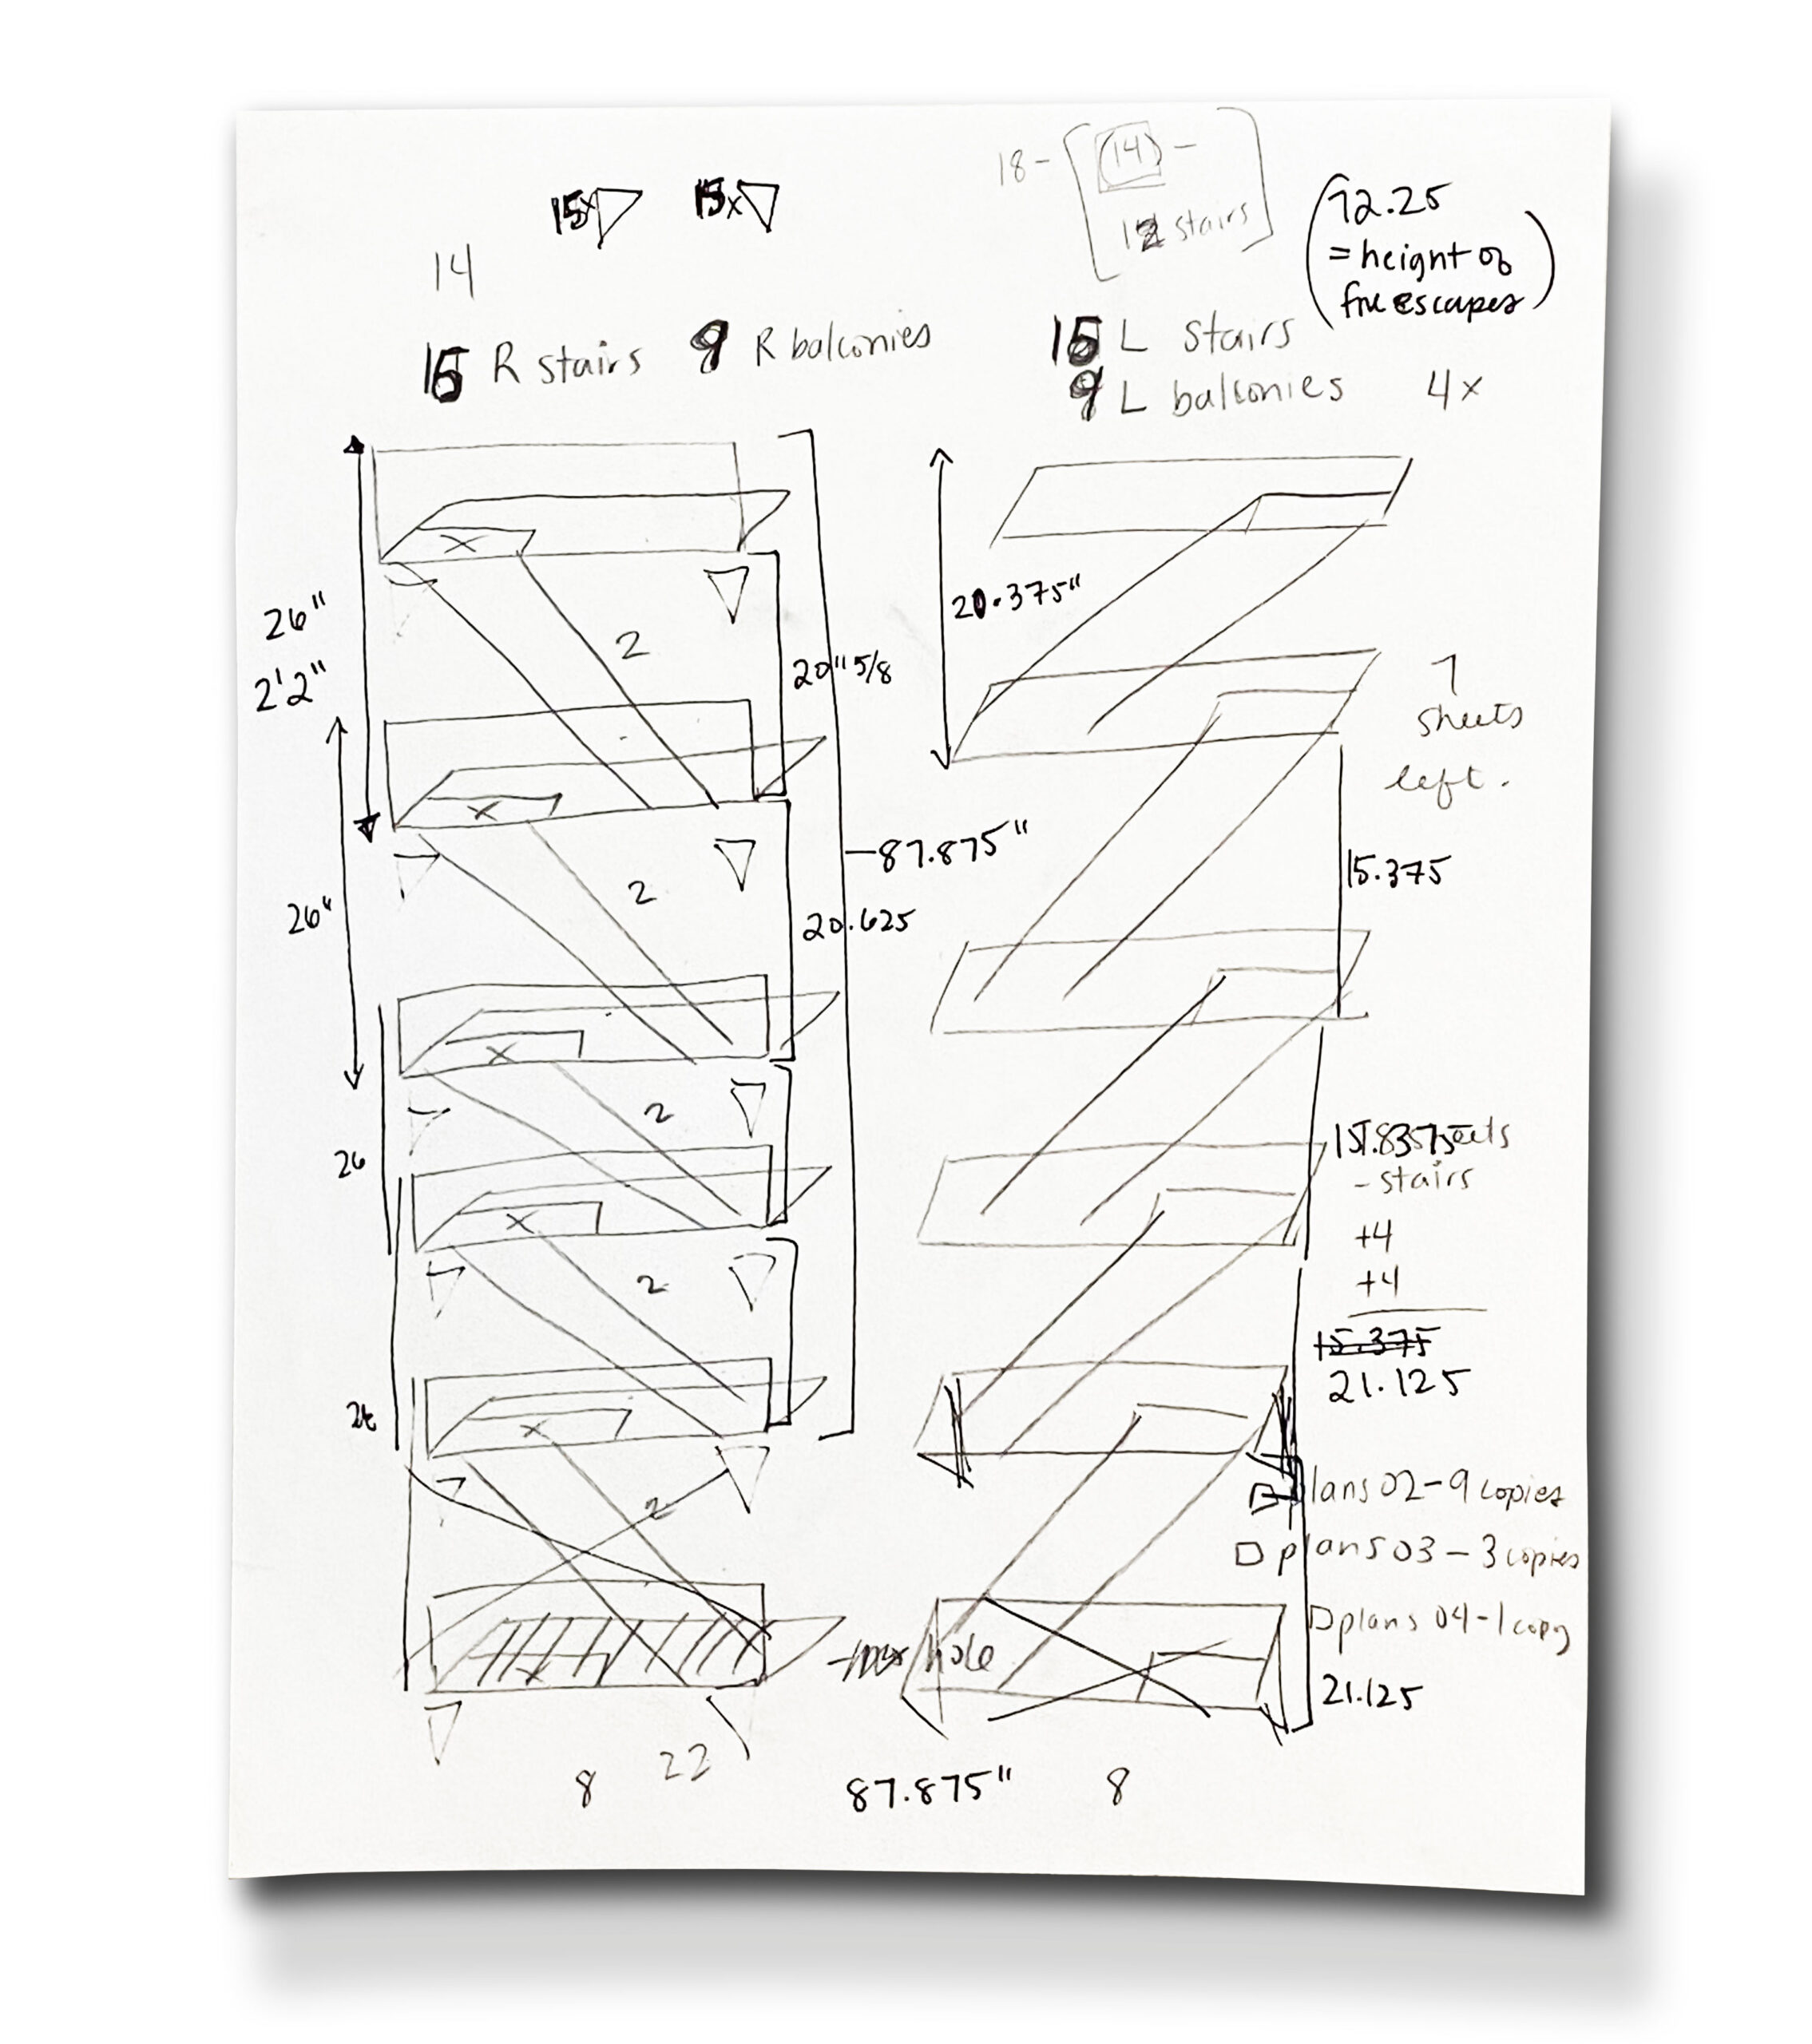 18- [ (14) -
12 stairs ]
15x 15x
(92.25
= height of
fire escapes)
14
15 R stairs 9 R balconies
15 L stairs
9 L balconies 4x
26"
2'2"
2
20" 5/8
20.375"
7
sheets
left.
87.875"
15.375
26"
2
20.625
26
2
- stairs
+4
+4
2
15.375
21.125
26
2
plans 02-9 copies
plans 03-3 copies
plans 04-1 copy
hole
21.125
8 22 87.875" 8